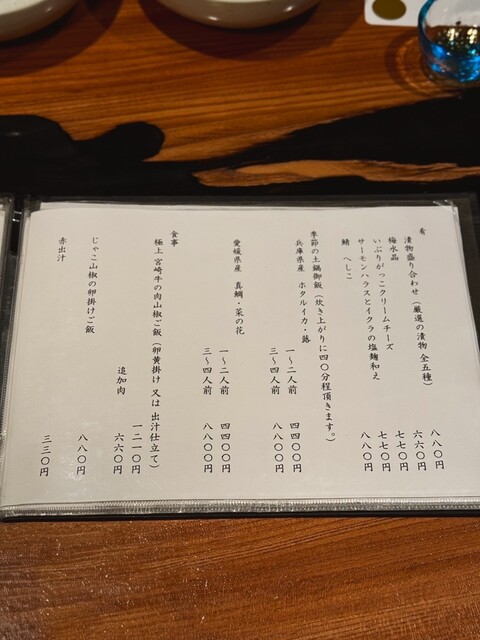 肴
漬物盛り合わせ（厳選の漬物 全五種） 八八〇円
梅水晶 六六〇円
いぶりがっこクリームチーズ 七七〇円
サーモンハラスとイクラの塩麹和え 七七〇円
鯖 へしこ 八八〇円
季節の土鍋御飯（炊き上がりに四〇分程頂きます。）
兵庫県産 ホタルイカ・蕗
一〜二人前 四四〇〇円
三〜四人前 八八〇〇円
愛媛県産 真鯛・菜の花
一〜二人前 四四〇〇円
三〜四人前 八八〇〇円
食事
極上 宮崎牛の肉山椒ご飯（卵黄掛け 又は 出汁仕立て） 一二一〇円
追加肉 六六〇円
じゃこ山椒の卵掛けご飯 八八〇円
赤出汁 三三〇円